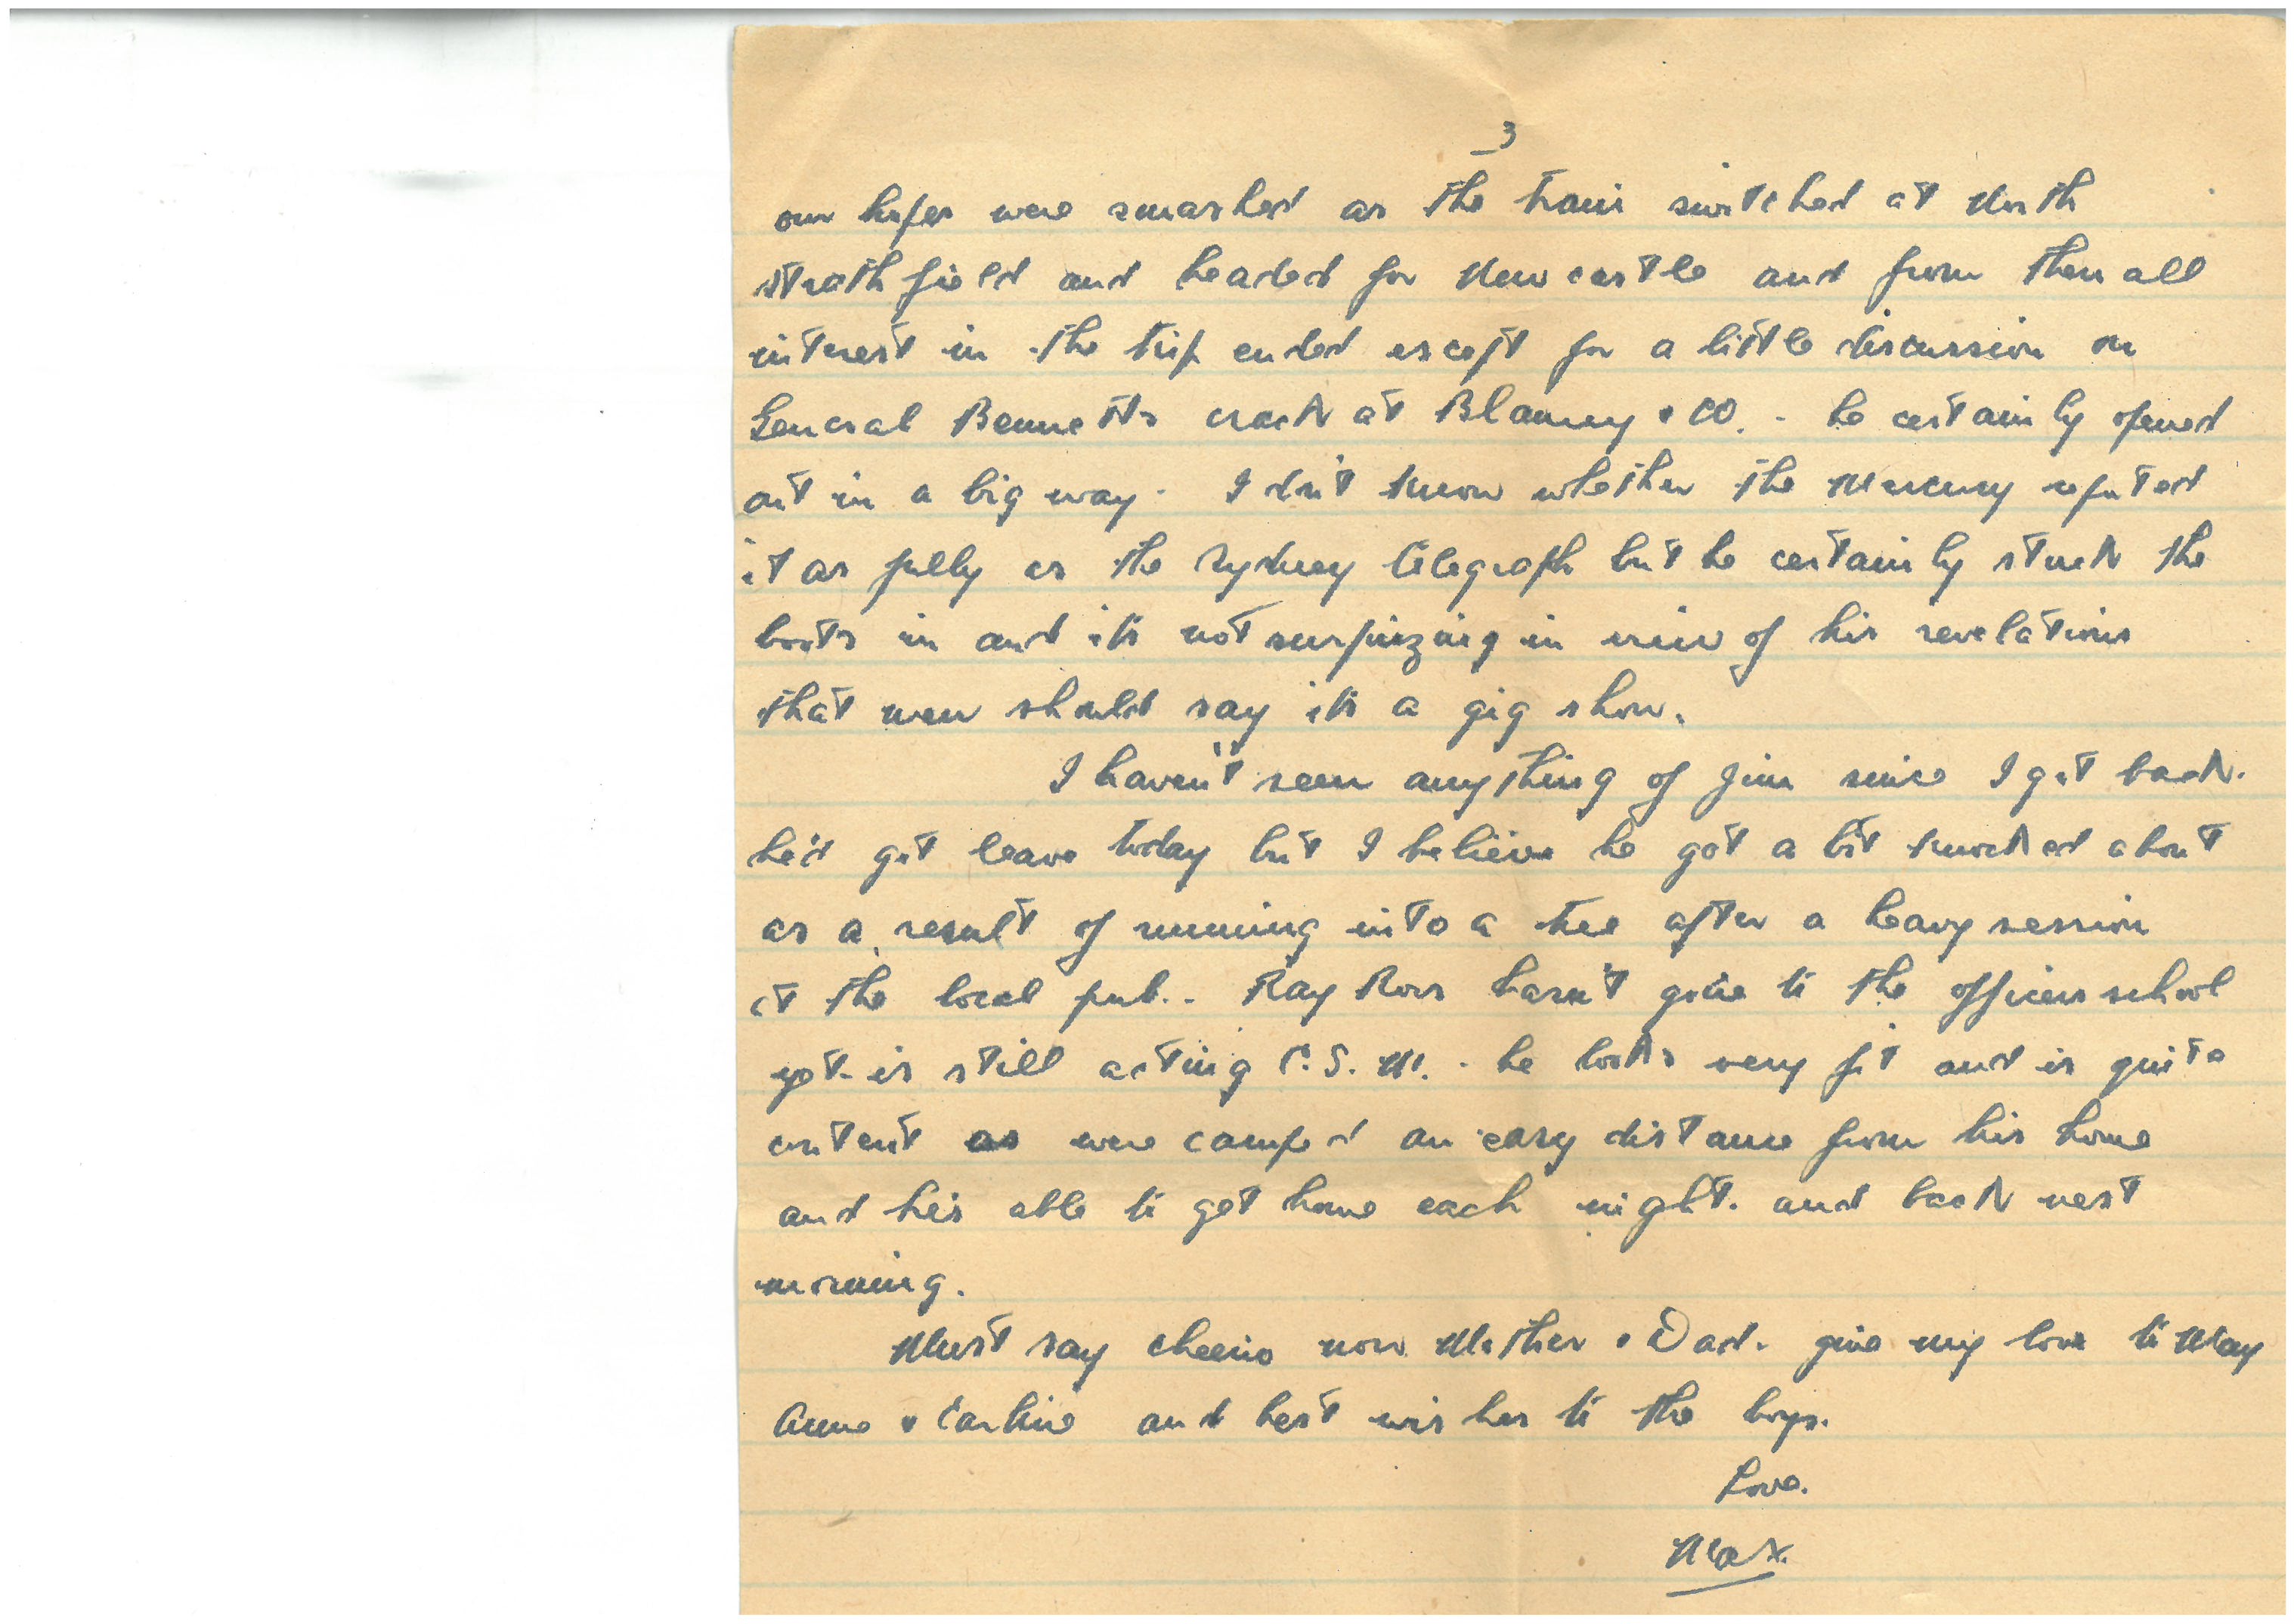 3
our hopes were smashed as the train switched at North
Strathfield and headed for Newcastle and from then all
interest in the trip ended except for a little discussion on
General Bennetts crack at Blamey & CO. - he certainly opened
out in a big way. I don't know whether the Mercury reported
it as fully as the Sydney Telegraph but he certainly stuck the
boots in and it's not surprizing in view of his revelations
that men should say it's a gig show.
I haven't seen anything of Jim since I got back.
he'd got leave today but I believe he got a bit knocked about
as a result of running into a tree after a heavy session
at the local pub.. Ray Ross hasn't gone to the officers school
yet - is still acting C.S.M. - he looks very fit and is quite
content as were camped an easy distance from his home
and he's able to get home each night. and back next
morning.
Must say cheerio now Mother & Dad. give my love to May
Anne & and best wishes to the boys.
Love.
Max.